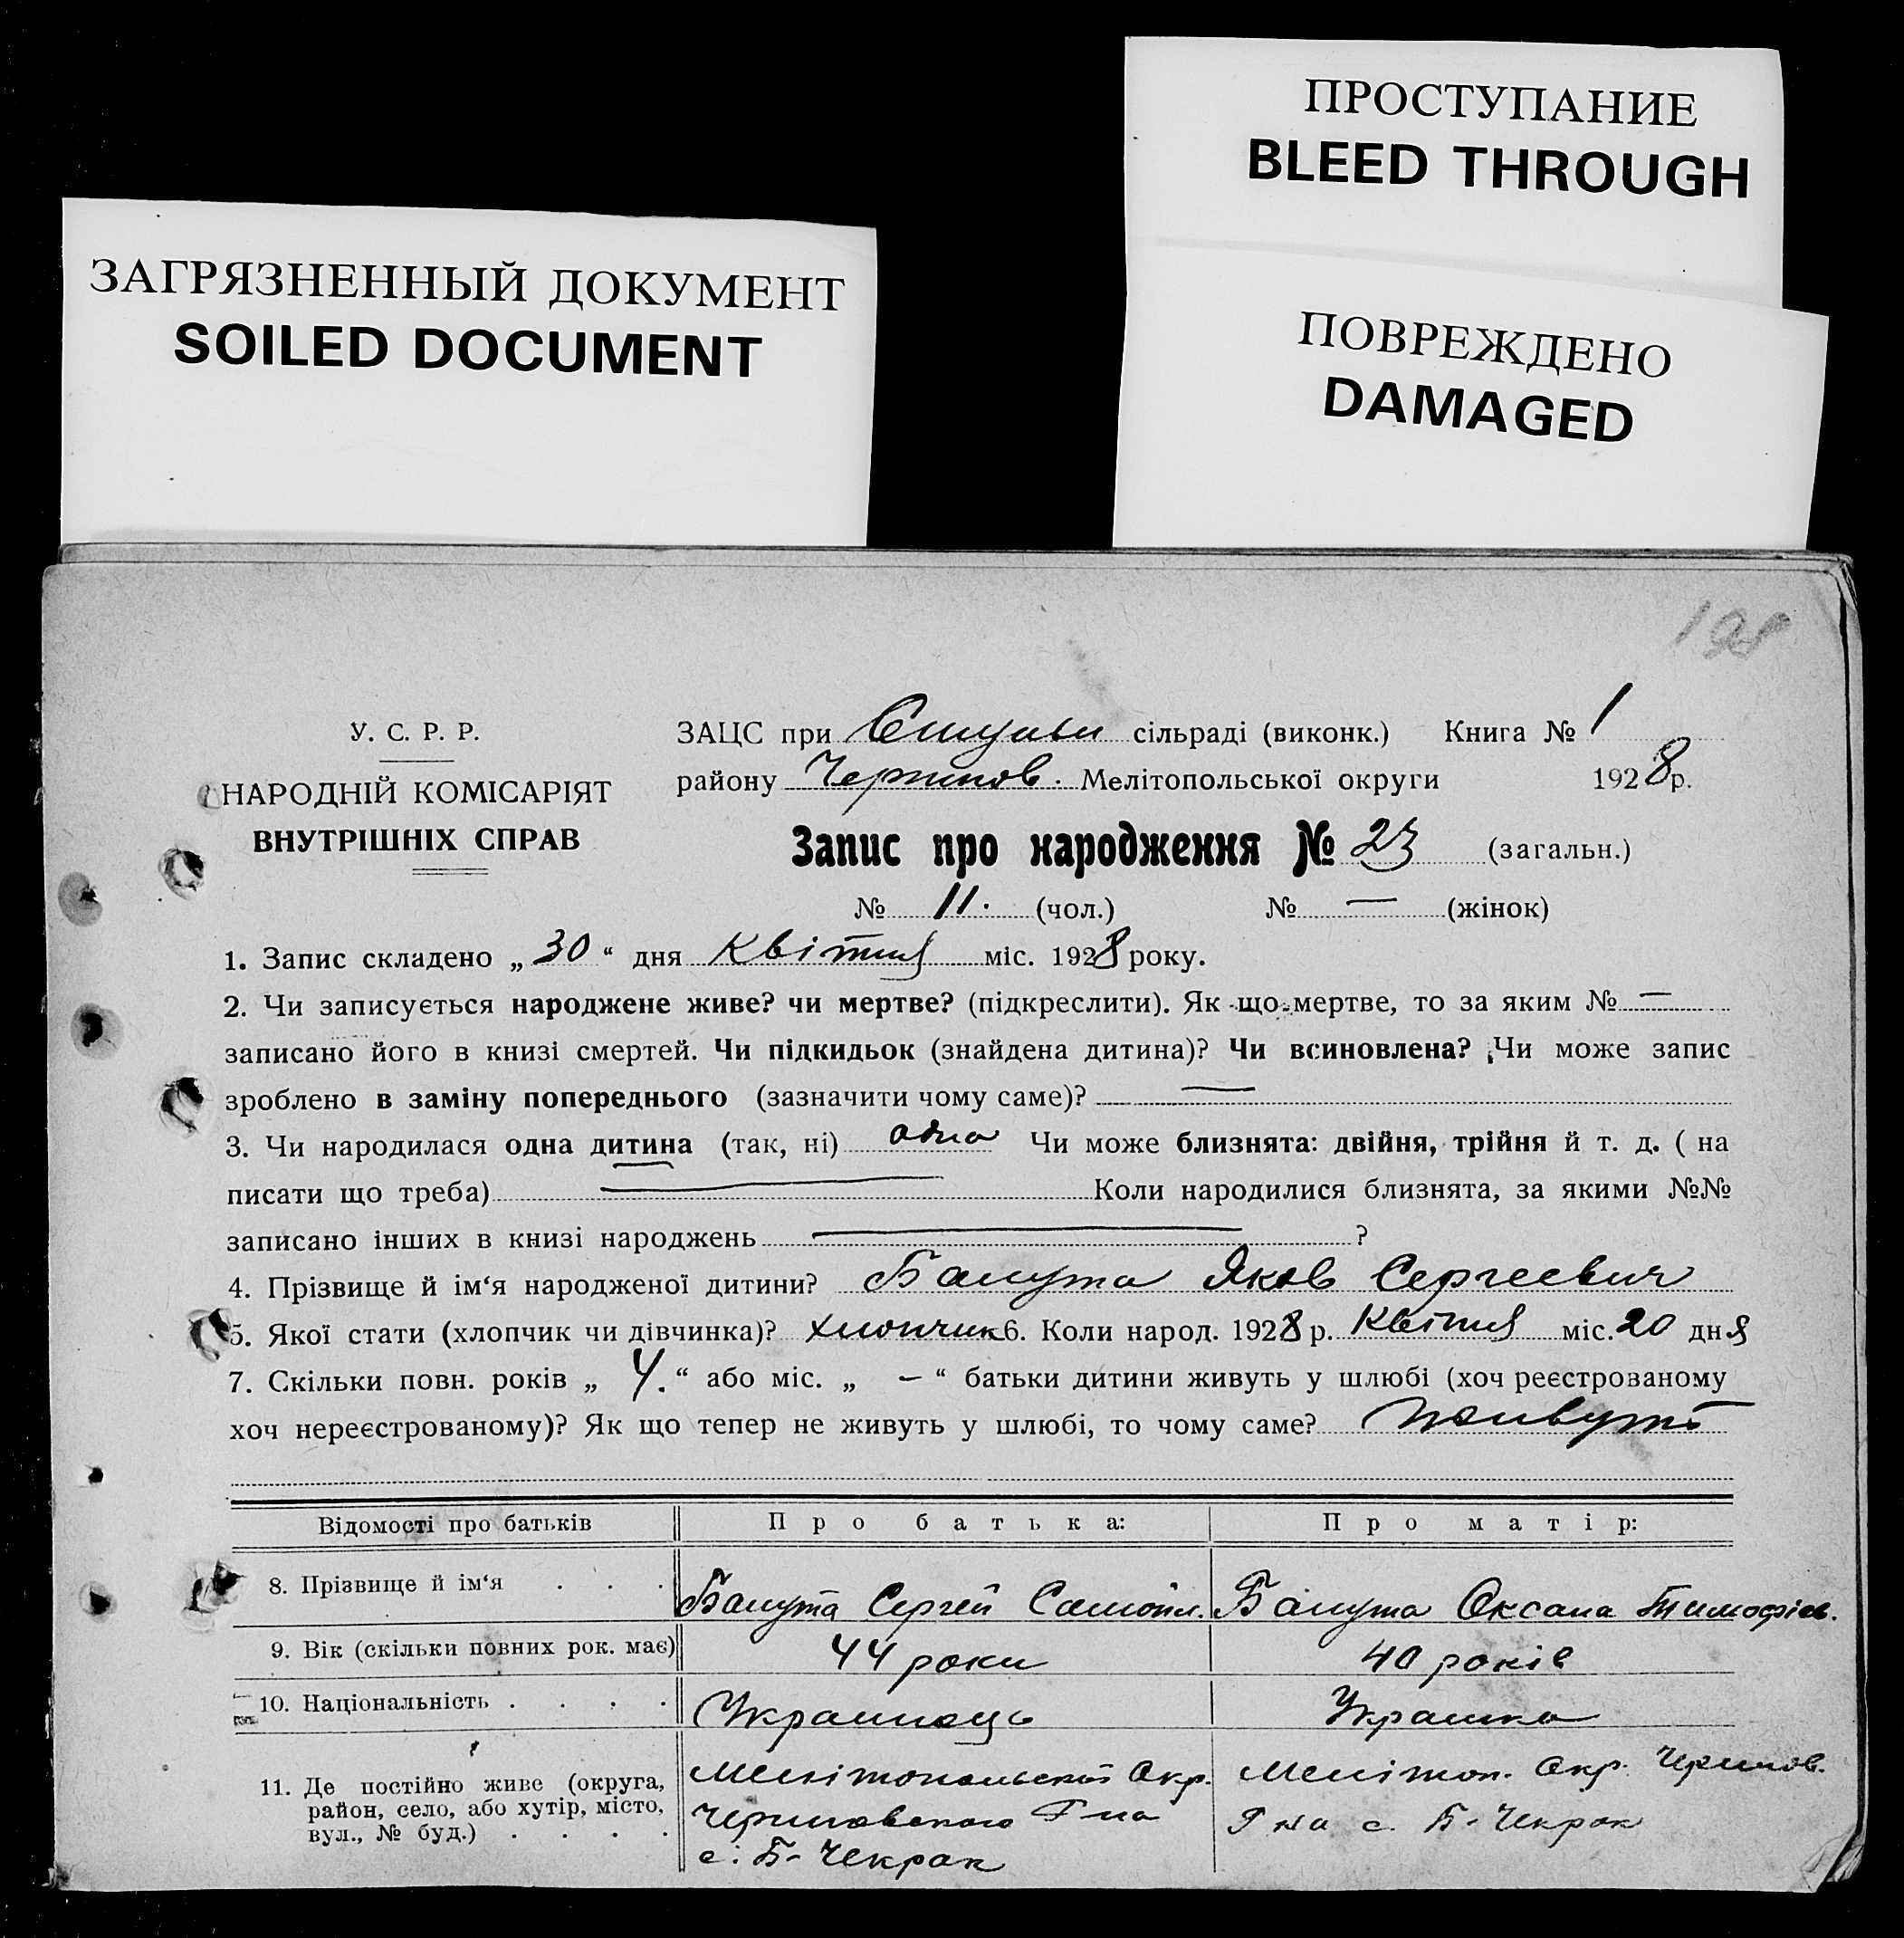 ПРОСТУПАНИЕ
BLEED THROUGH
ЗАГРЯЗНЕННЫЙ ДОКУМЕНТ
SOILED DOCUMENT
ПОВРЕЖДЕНО
DAMAGED
198
У. С. Р. Р.
НАРОДНІЙ КОМІСАРІЯТ
ВНУТРІШНІХ СПРАВ
ЗАЦС при сільраді (виконк.) Книга № 1
району Мелітопольської округи 1928 р.
Запис про народження № 23 (загальн.)
№ 11. (чол.) № — (жінок)
1. Запис складено „30“ дня Квітня міс. 1928 року.
2. Чи записується народжене живе? чи мертве? (підкреслити). Як-що-мертве, то за яким № —
записано його в книзі смертей. Чи підкидьок (знайдена дитина)? Чи всиновлена? Чи може запис
зроблено в заміну попереднього (зазначити чому саме)? —
3. Чи народилася одна дитина (так, ні) одна Чи може близнята: двійня, трійня й т. д. ( на
писати що треба) — Коли народилися близнята, за якими №№
записано інших в книзі народжень — ?
4. Прізвище й ім‘я народженої дитини? Балута Яков Сергеевич
5. Якої стати (хлопчик чи дівчинка)? хлопчик 6. Коли народ. 1928 р. Квітня міс. 20 дня
7. Скільки повн. років „4.“ або міс. „—“ батьки дитини живуть у шлюбі (хоч реєстрованому
хоч нереєстрованому)? Як що тепер не живуть у шлюбі, то чому саме? живуть
Відомості про батьків Про батька: Про матір:
8. Прізвище й ім‘я . . . Балута Сергей Самойл. Балута Оксана Тимофіев.
9. Вік (скільки повних рок. має) 44 роки 40 років
10. Національність . . . . Украинець Украинка
11. Де постійно живе (округа, район, село, або хутір, місто, вул., № буд.) . . . .
Мелітопольской Окр.
Р-на
с. Б-Чекрак
Мелітоп. Окр.
Р-на с. Б-Чекрак